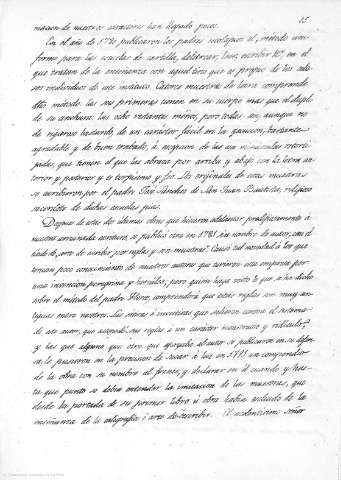 35
macion de nuestros caractères han llegado pues.
En el año de 1780 publicaron los padres escolapios el, metodo uni-
forme para las escuelas de cartilla, deletrear, leer, escribir &ª, en el
que tratan de la enseñanza con aquel tino que es propio de los celo-
sos individuos de este instituto. Catorce muestras de letra comprende
dho método, las seis primeras tienen en su cuerpo mas que el duplo
de su anchura: las ocho restantes menos, pero todas son, aunque no
de riguroso bastardo, de un carácter facil en la
agradable y de buen trabado, á escepcion de las
jadas, que tienen el que las abraza por arriba y abajo con la letra an-
terior y posterior y es torpisimo y feo. Los originales de estas muestras
se escribieron por el padre José Sanchez de San Juan Bautista, religioso
sacerdote de dichas escuelas pias.
Despues de estas dos ultimas obras que hicieron adelantar prodigiosamente á
nuestra arruinada escritura, se publicó otra en 1781, sin nombre de autor, con el
titulo de, arte de escribir, por reglas y sin muestras. Causó tal novedad á los que
tenian poco conocimiento de nuestros autores que tuvieron esta empresa por
una invencion peregrina y terrible; pero quien haya visto lo que se ha dicho
sobre el método del padre Florez, comprenderá que estas reglas son muy an-
tiguas entre nosotros. Las sátiras é invectivas que salieron contra el sistema
de este autor, que acomodó sus reglas á un carácter monstruoso y ridículo,
y las que alguno que otro que apoyaba al autor se publicaron en su defen-
sa, le pusieron en la precision de sacar á luz en un compendio
de la obra con su nombre al frente, y declarar en él cuando y has-
ta que punto se debia entender la imitacion de las muestras, que
desde la portada de su primer libro ú obra habia escluido de la
enseñanza de la caligrafia ó arte de escribir. El escelentisimo señor